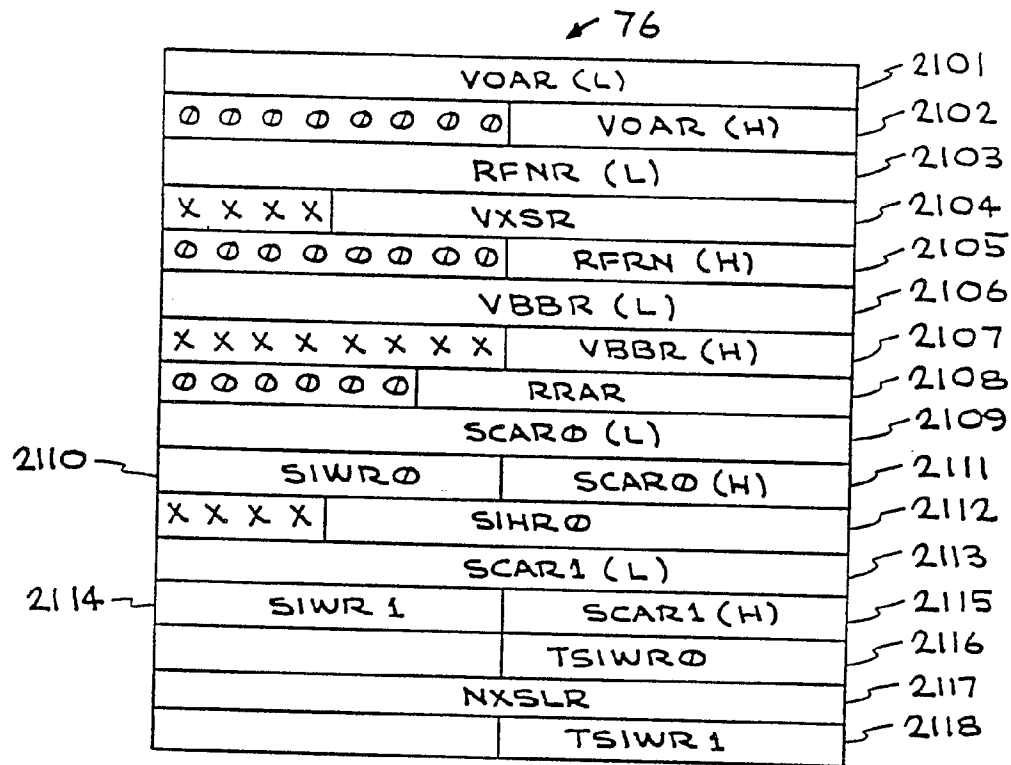 76
VOAR (L) 2101
0 0 0 0 0 0 0 0 VOAR (H) 2102
RFNR (L) 2103
X X X X VXSR 2104
0 0 0 0 0 0 0 0 RFRN (H) 2105
VBBR (L) 2106
X X X X X X X X VBBR (H) 2107
0 0 0 0 0 0 RRAR 2108
SCAR0 (L) 2109
2110 SIWR0 SCAR0 (H) 2111
X X X X SIHR0 2112
SCAR1 (L) 2113
2114 SIWR 1 SCAR1 (H) 2115
TSIWR0 2116
NXSLR 2117
TSIWR 1 2118